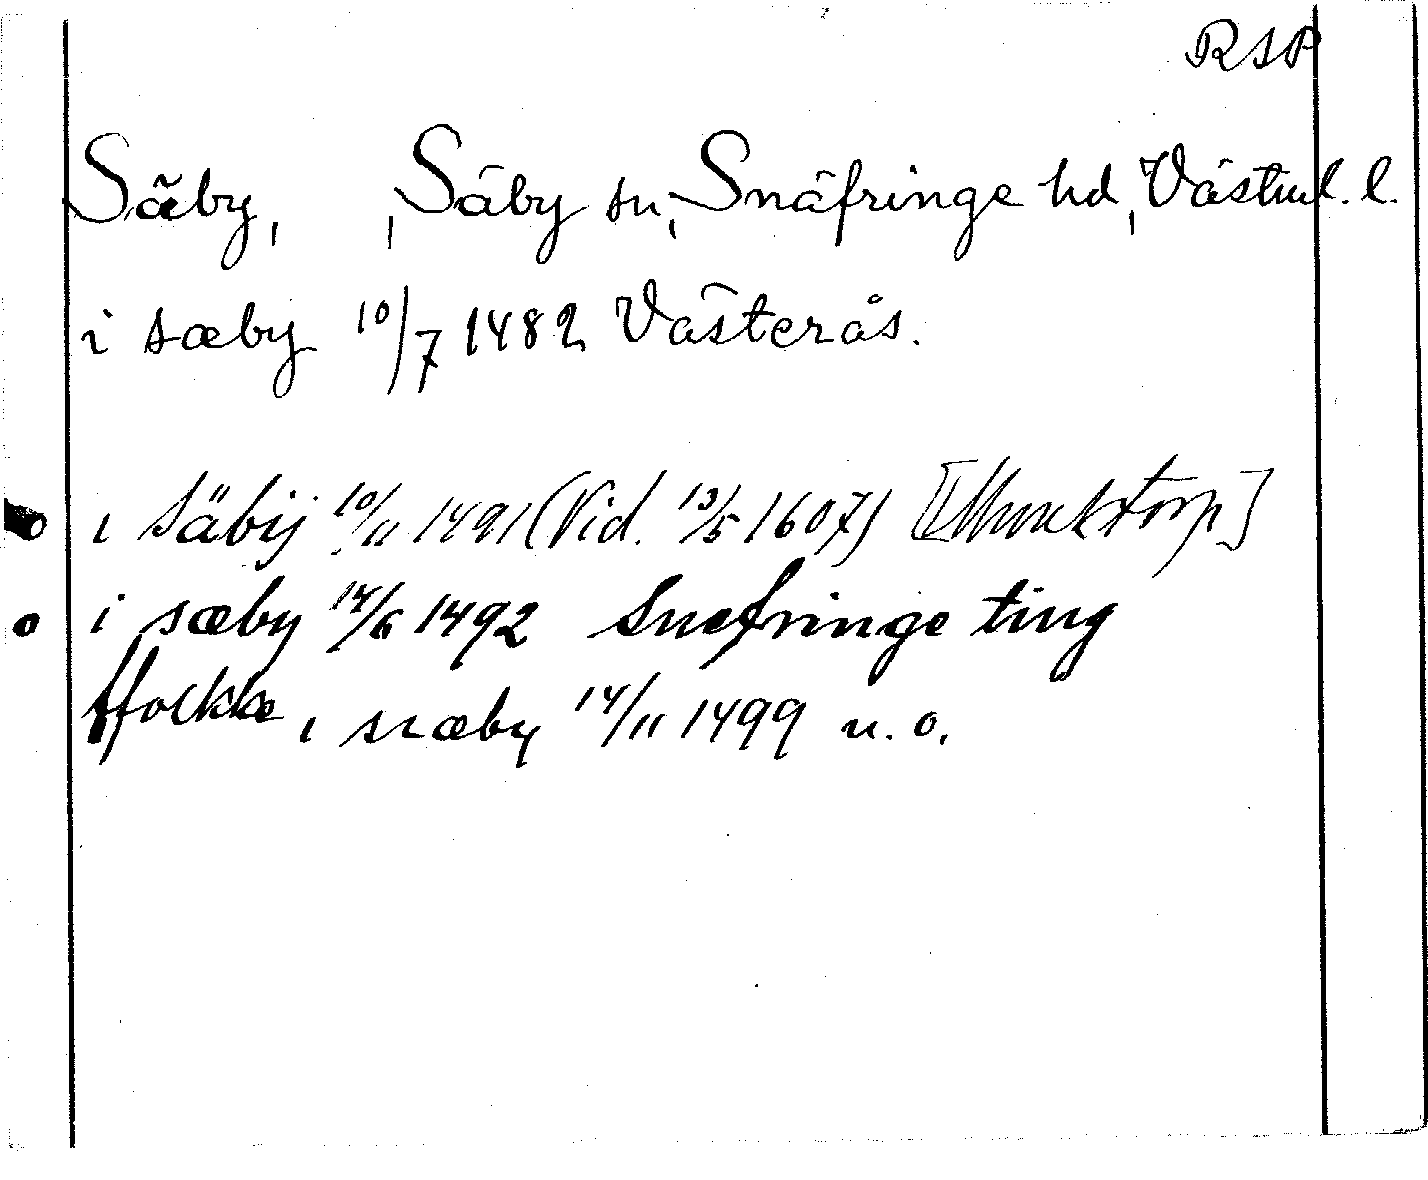 RAP
Säby, , Säby sn, Snäfringe hd, Västml. l.
i sæby 10/7 1482 Västerås.
o i Säbÿ 10/11 1491 (Vid. 13/5 1607) [Munktorp]
o i sæby 14/6 1492 Snefringe ting
ffockæ i sæby 14/11 1499 u. o.